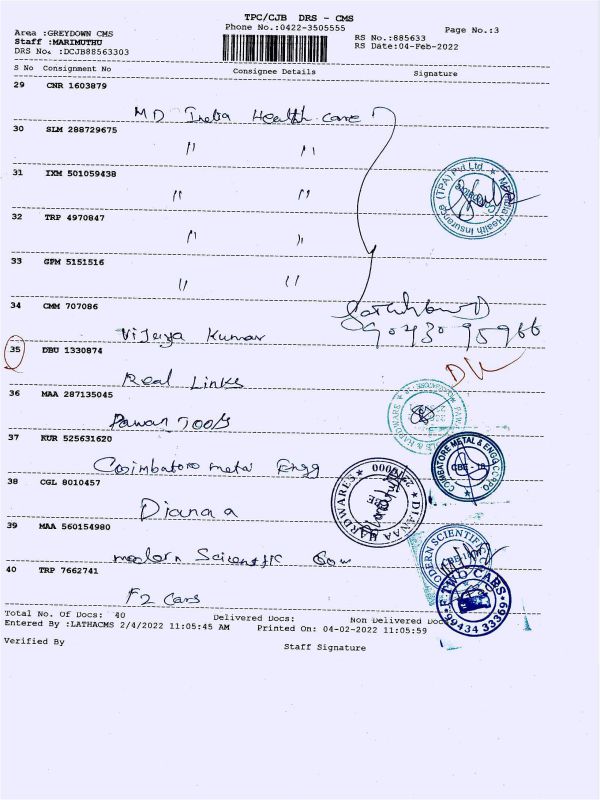 TPC/CJB DRS - CMS
Phone No.:0422-3505555
Page No.:3
Area :GREYDOWN CMS
Staff :MARIMUTHU
DRS No. :DCJB88563303
RS No.:885633
RS Date:04-Feb-2022
S No Consignment No Consignee Details Signature
29 CNR 1603879
MD India Health Care
30 SLM 288729675
〃 〃
31 IXM 501059438
〃 〃
32 TRP 4970847
〃 〃
33 GPM 5151516
〃 〃
34 CMM 707086
Vijeya Kumar
90430 95966
35 DBU 1330874
Real Links
36 MAA 287135045
Pawan Tools
37 KUR 525631620
Coimbatore metal Engg
COIMBATORE METAL & ENGG CORPO
CBE - 18
38 CGL 8010457
Dianaa
DIANAA HARDWARES
39 MAA 560154980
modern Scientific
MODERN SCIENTIFIC
40 TRP 7662741
F2 Cars
F TWO CARS
99434 33369
Total No. Of Docs: 40 Delivered Docs: Non Delivered Doc
Entered By :LATHACMS 2/4/2022 11:05:45 AM Printed On: 04-02-2022 11:05:59
Verified By Staff Signature